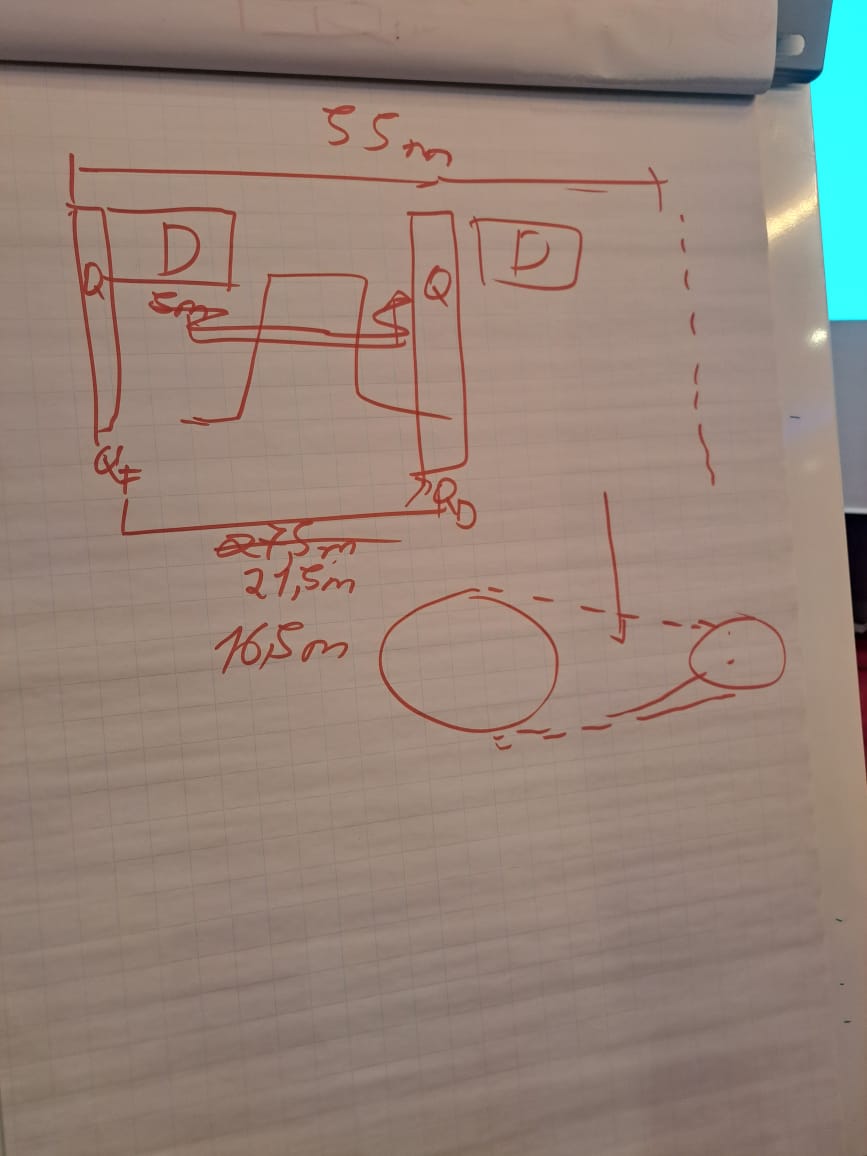 55m
D
D
Q
Q
5m
QF
QD
27,5m
21,5m
16,5m